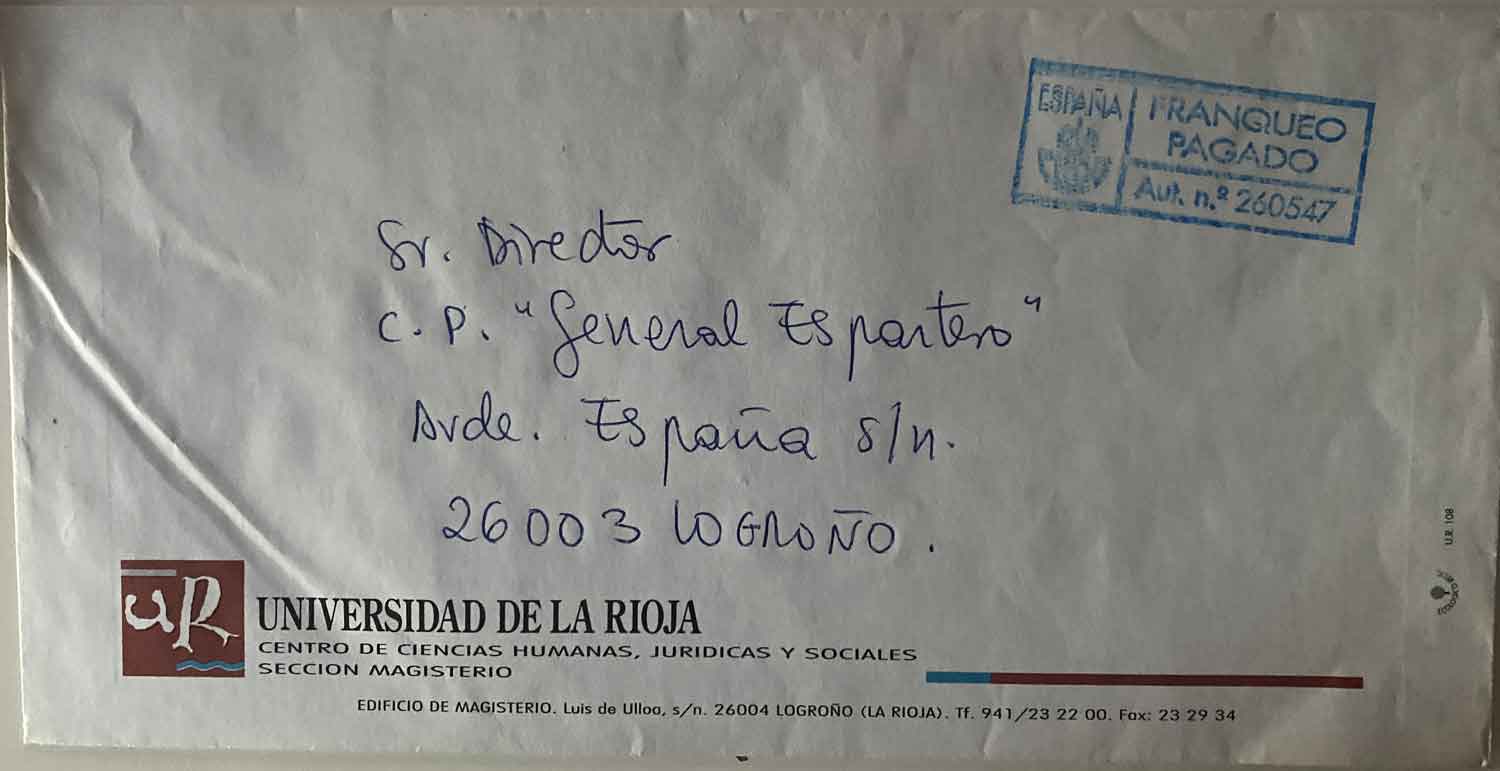 ESPAÑA
FRANQUEO
PAGADO
Aut. n.º 260547
Sr. Director
C.P. "General Espartero"
Avda. España s/n.
26003 LOGROÑO.
UR
UNIVERSIDAD DE LA RIOJA
CENTRO DE CIENCIAS HUMANAS, JURIDICAS Y SOCIALES
SECCION MAGISTERIO
EDIFICIO DE MAGISTERIO. Luis de Ulloa, s/n. 26004 LOGROÑO (LA RIOJA). Tf. 941/23 22 00. Fax: 23 29 34
U.R. 108